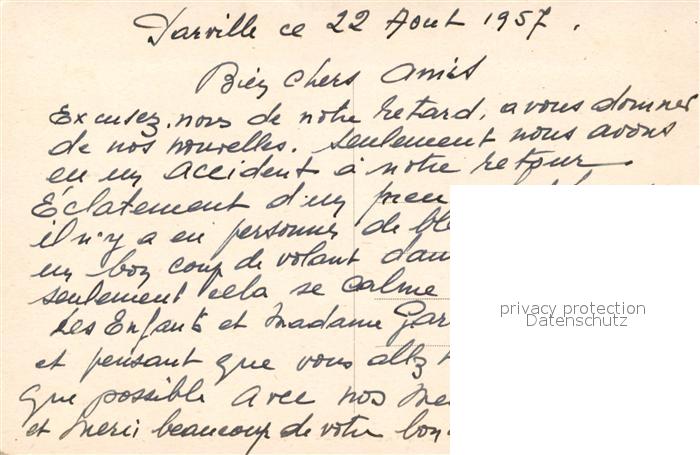 Darville ce 22 Aout 1957.
Bien chers Amis
Excusez, nous de notre retard, a vous donner
de nos nouvelles. seulement nous avons
eu un accident à notre retour
Éclatement d'un pneu
il n'y a eu personnes de
un bon coup de volant dan
seulement cela se calme
Les Enfants et Madame Gar
et pensant que vous allez
que possible avec nos Me
et Merci beaucoup de votre bon
privacy protection
Datenschutz